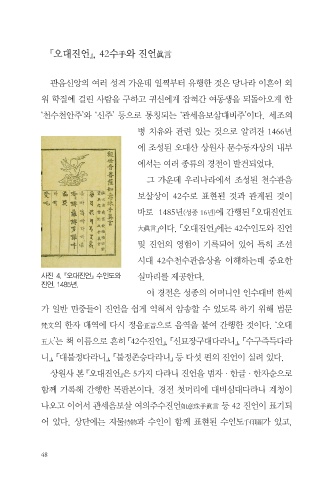 『오대진언』, 42수手와 진언眞言
관음신앙의 여러 성격 가운데 일찍부터 유행한 것은 당나라 이흔이 외
위 학질에 걸린 사람을 구하고 귀신에게 잡혀간 여동생을 되돌아오게 한
‘천수천안주’와 ‘신주’ 등으로 통칭되는 ‘관세음보살대비주’이다. 세조의
병 치유와 관련 있는 것으로 알려진 1466년
에 조성된 오대산 상원사 문수동자상의 내부
에서는 여러 종류의 경전이 발견되었다.
그 가운데 우리나라에서 조성된 천수관음
보살상이 42수로 표현된 것과 관계된 것이
바로 1485년(성종 16년)에 간행된 『오대진언五
大眞言』이다. 『오대진언』에는 42수인도와 진언
및 진언의 영험이 기록되어 있어 특히 조선
시대 42수천수관음상을 이해하는데 중요한
실마리를 제공한다.
사진 4. 『오대진언』 수인도와
진언. 1485년.
이 경전은 성종의 어머니인 인수대비 한씨
가 일반 민중들이 진언을 쉽게 익혀서 암송할 수 있도록 하기 위해 범문
梵文의 한자 대역에 다시 정음正音으로 음역을 붙여 간행한 것이다. ‘오대
五大’는 책 이름으로 흔히 『42수진언』, 『신묘장구대다라니』, 『수구즉득다라
니』, 『대불정다라니』, 『불정존승다라니』 등 다섯 편의 진언이 실려 있다.
상원사 본 『오대진언』은 5가지 다라니 진언을 범자·한글·한자순으로
함께 기록해 간행한 목판본이다. 경전 첫머리에 대비심대다라니 계청이
나오고 이어서 관세음보살 여의주수진언如意珠手眞言 등 42 진언이 표기되
어 있다. 상단에는 지물持物과 수인이 함께 표현된 수인도手印圖가 있고,
48